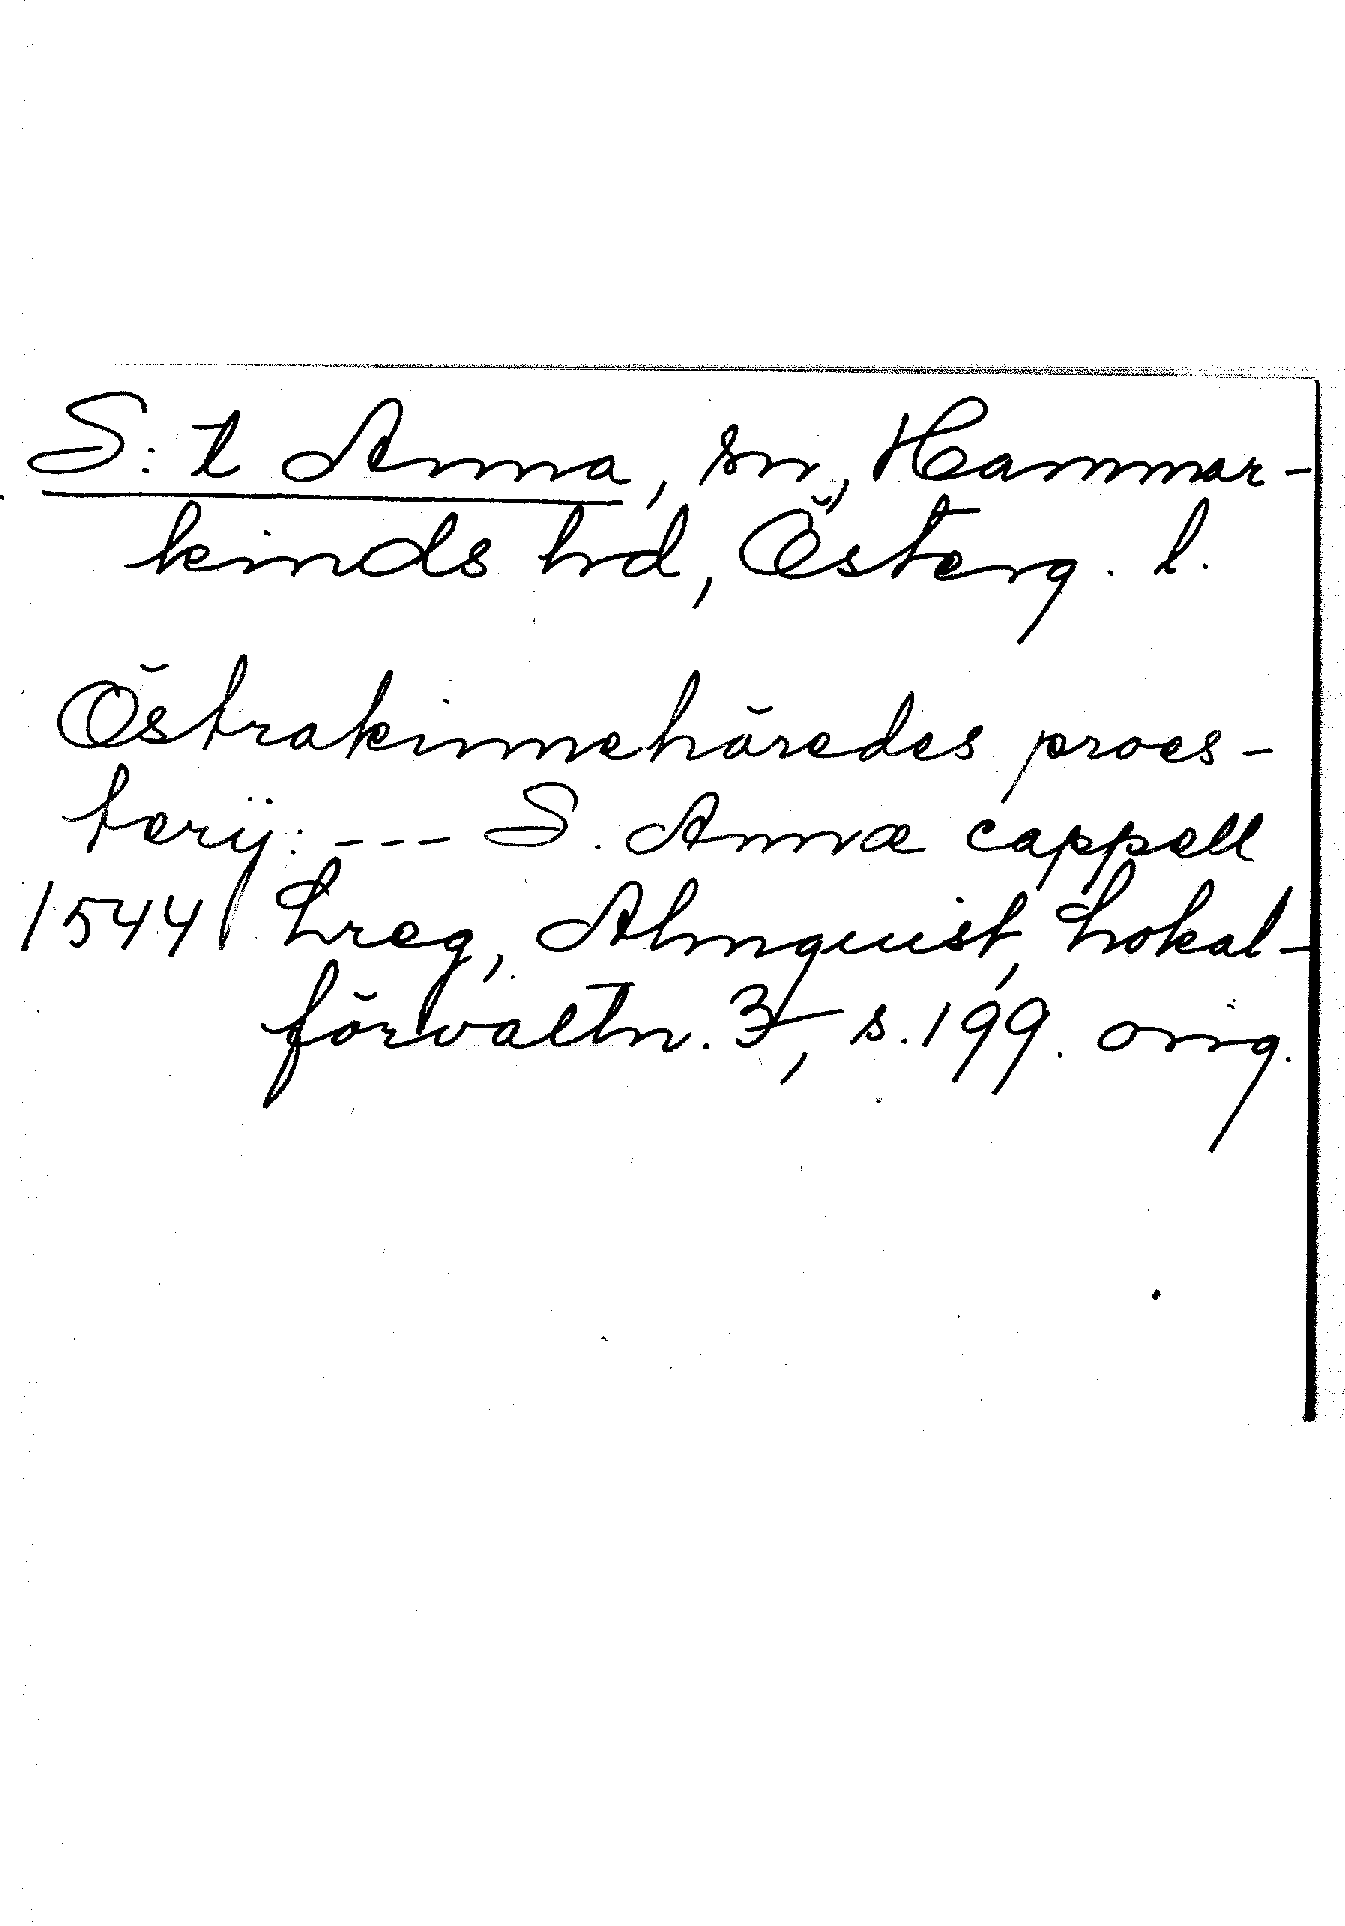 S:t Anna, sn, Hammar-
kinds hd, Österg. l.
Östrakinnehäredes proes-
terij: --- S. Annæ cappell
1544 Lreg, Almquist, Lokal-
förvaltn. 3, s. 199. orig.